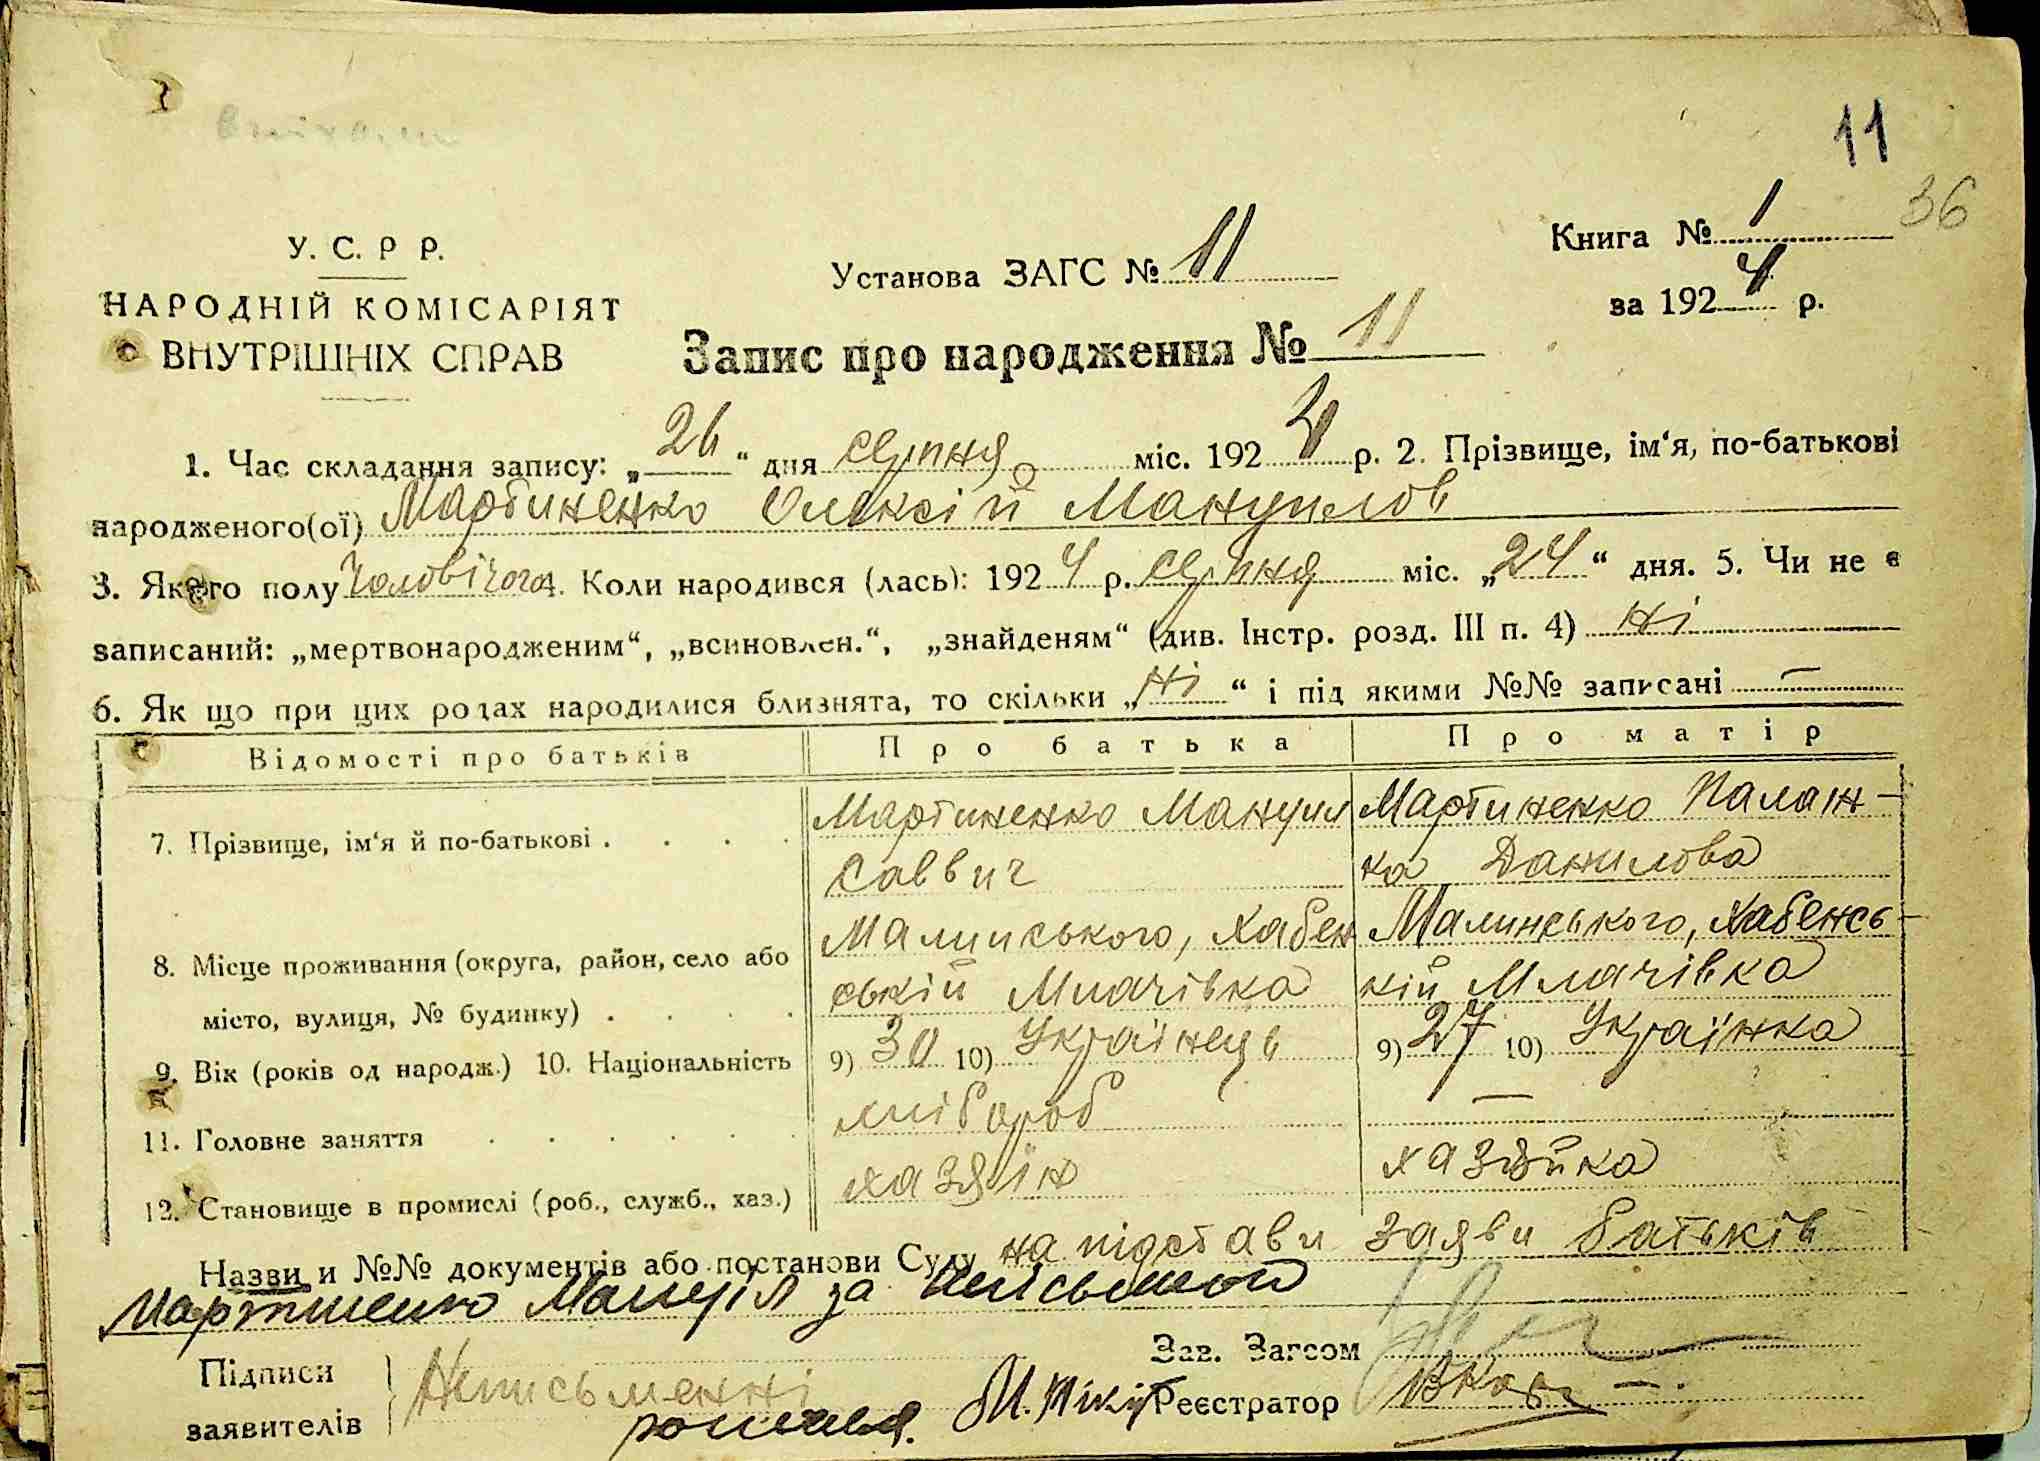 11
36
У. С. Р Р.
НАРОДНІЙ КОМІСАРІЯТ
ВНУТРІШНІХ СПРАВ
Установа ЗАГС № 11
Книга № 1
за 1924 р.
Запис про народження № 11
1. Час складання запису: „26“ дня серпня міс. 1924 р. 2. Прізвище, ім‘я, по-батькові
народженого(ої) Мартиненко Олексій Мануилов
3. Якого полу Чоловічого 4. Коли народився (лась): 1924 р. серпня міс. „24“ дня. 5. Чи не є
записаний: „мертвонародженим“, „всиновлен.“, „знайденям“ (див. Інстр. розд. III п. 4) ні
6. Як що при цих родах народилися близнята, то скільки „ні“ і під якими №№ записані —
Відомості про батьків Про батька Про матір
7. Прізвище, ім‘я й по-батькові . . . . Мартиненко Мануил Мартиненко Палаж-
Саввич ка Данилова
8. Місце проживання (округа, район, село або Малинського, Хабен Малинського, Хабенсь-
ський Млачівка кій Млачівка
місто, вулиця, № будинку) . . . .
9. Вік (років од народж.) 10. Національність 9) 30 10) Українець 9) 27 10) Українка
11. Головне заняття . . . . . . хлібороб —
12. Становище в промислі (роб., служб., хаз.) хазяїн хазяйка
Назви и №№ документів або постанови Суду на підстави заяви батьків
Мартиненко Мануіл за
Зав. Загсом
Підписи
заявителів
Неписьменні
М.
Реєстратор